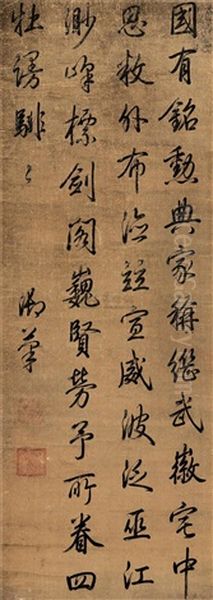 國有銘勳典家稱繼武徽宅中
恩敷外布德遠宣威波泛巫江
渺峰標劍閣巍賢勞予所眷四
牡謾騑〻
御筆